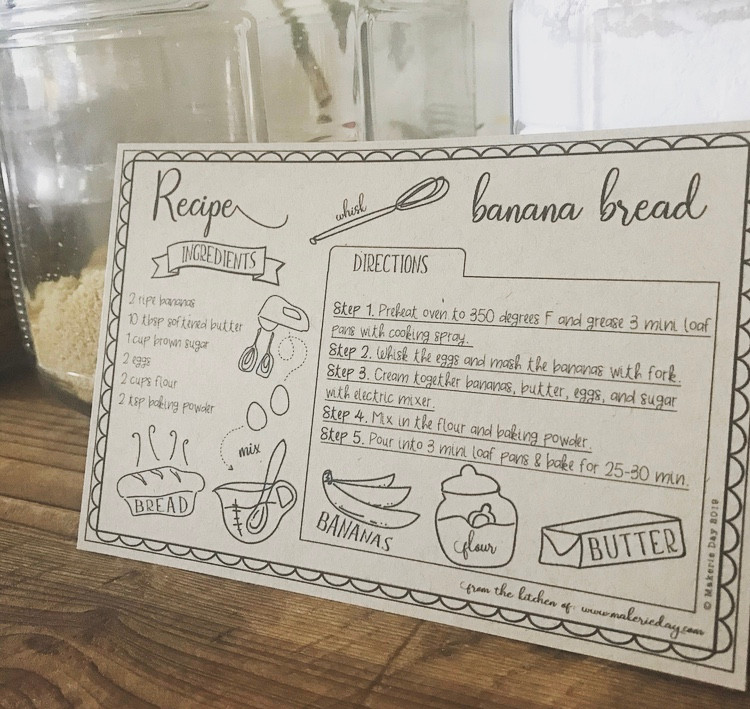 Recipe
whisk
banana bread
INGREDIENTS
2 ripe bananas
10 tbsp softened butter
1 cup brown sugar
2 eggs
2 cups flour
2 tsp baking powder
mix
BREAD
DIRECTIONS
Step 1. Preheat oven to 350 degrees F and grease 3 mini loaf
pans with cooking spray.
Step 2. Whisk the eggs and mash the bananas with fork.
Step 3. Cream together bananas, butter, eggs, and sugar
with electric mixer.
Step 4. Mix in the flour and baking powder.
Step 5. Pour into 3 mini loaf pans & bake for 25-30 min.
BANANAS
flour
BUTTER
© Makerie Day 2019
from the kitchen of: www.makerieday.com